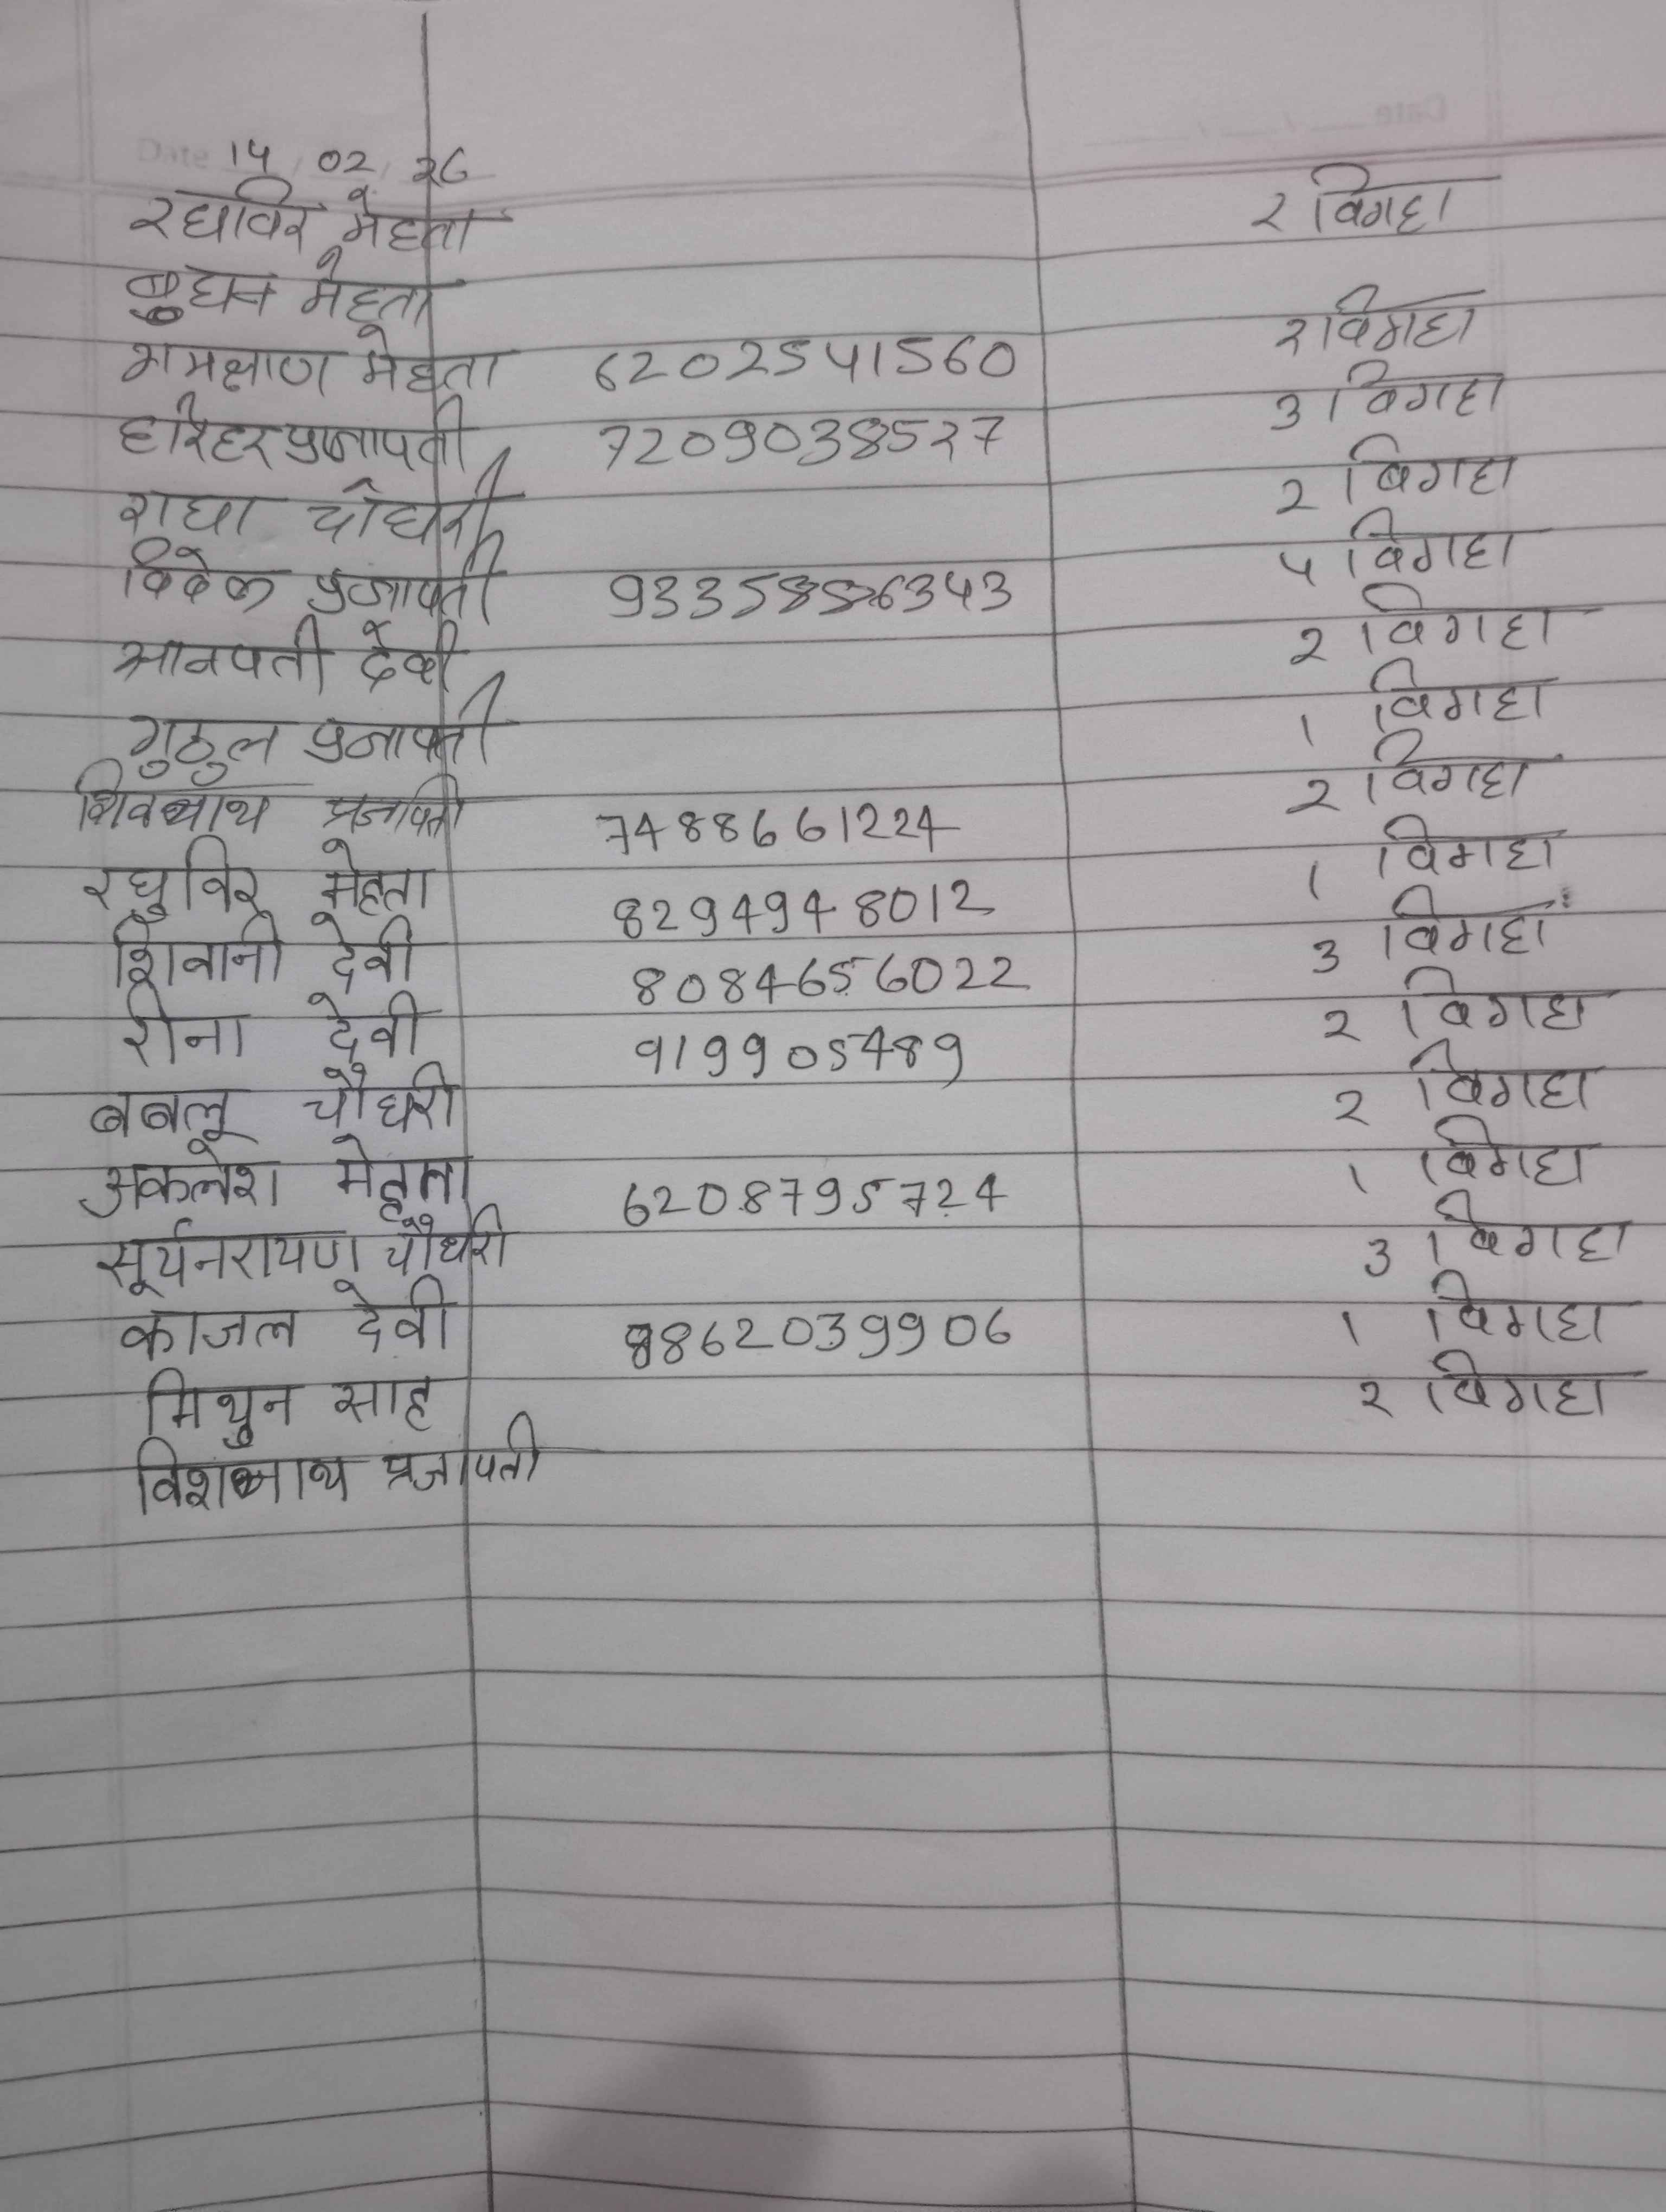 Date 14 / 02 / 26
रघाविर मेहता २ विगहा
बुधन मेहता
रामक्षाण मेहता 6202541560 २ विगहा
हरिहर प्रजापती 7209038527 3 विगहा
राधा चौधरी 2 विगहा
विवेक प्रजापती 933586343 ५ विगहा
मानपती देवी 2 विगहा
गुठुल प्रजापती 1 विगहा
शिवनाथ प्रजापती 7488661224 2 विगहा
रघुविर मेहता 8294948012 1 विगहा
शिवानी देवी 8084656022 3 विगहा
रीना देवी 919905489 2 विगहा
बबलू चौधरी 2 विगहा
अकलेश मेहता 6208795724 1 विगहा
सूर्यनरायण चौधरी 3 विगहा
काजल देवी 9862039906 1 विगहा
मिथुन साह २ विगहा
विशनाथ प्रजापती